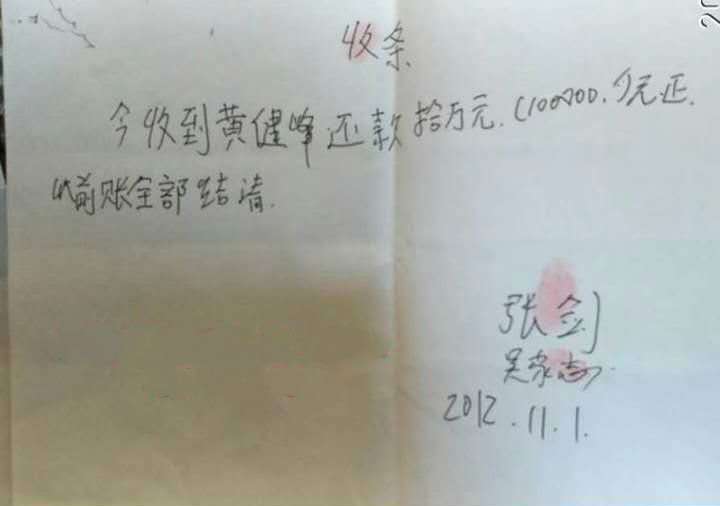 收条
今收到黄健峰还款拾万元.(100000.)元正.
以前账全部结清.
张剑
吴家志
2012.11.1.